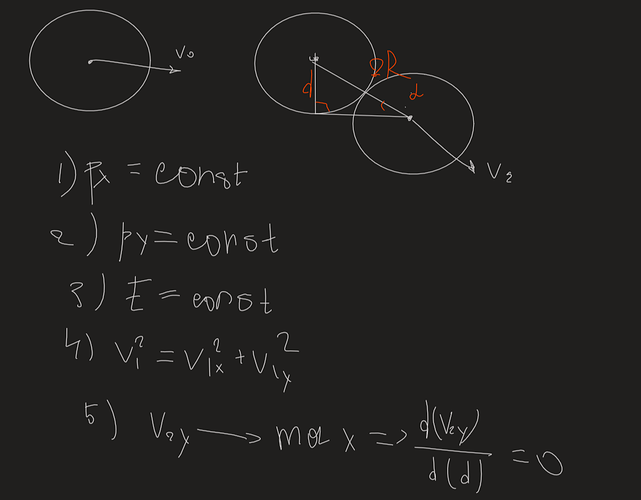 V₀
d
2R
α
V₂
1) px = const
2) py = const
3) E = const
4) V₁² = V₁ₓ² + V₁y²
5) V₂y → max => d(V₂y)/d(d) = 0